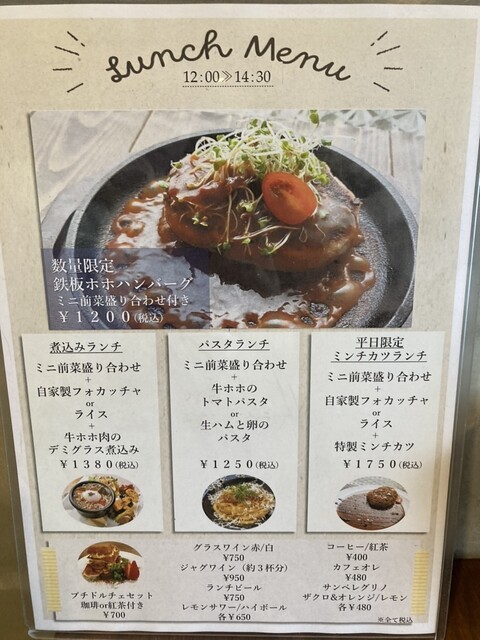 Lunch Menu
12:00≫14:30
数量限定
鉄板ホホハンバーグ
ミニ前菜盛り合わせ付き
￥1200(税込)
煮込みランチ
ミニ前菜盛り合わせ
+
自家製フォカッチャ
or
ライス
+
牛ホホ肉の
デミグラス煮込み
￥1380(税込)
パスタランチ
ミニ前菜盛り合わせ
+
牛ホホの
トマトパスタ
or
生ハムと卵の
パスタ
￥1250(税込)
平日限定
ミンチカツランチ
ミニ前菜盛り合わせ
+
自家製フォカッチャ
or
ライス
+
特製ミンチカツ
￥1750(税込)
プチドルチェセット
珈琲or紅茶付き
￥700
グラスワイン赤/白
￥750
ジャグワイン（約３杯分）
￥950
ランチビール
￥750
レモンサワー/ハイボール
各￥650
コーヒー/紅茶
￥400
カフェオレ
￥480
サンペレグリノ
ザクロ&オレンジ/レモン
各￥480
※全て税込